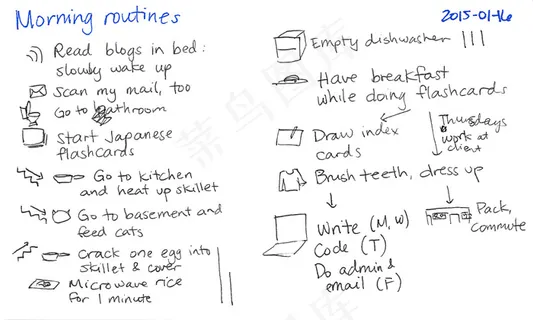 Morning routines
2015-01-16
Read blogs in bed:
slowly wake up
Scan my mail, too
Go to bathroom
Start Japanese
flashcards
Go to kitchen
and heat up skillet
Go to basement and
feed cats
Crack one egg into
skillet & cover
Microwave rice
for 1 minute
Empty dishwasher
Have breakfast
while doing flashcards
Draw index
cards
Thursdays
work at
client
Brush teeth, dress up
Write (M, W)
Code (T)
Do admin &
email (F)
Pack,
commute